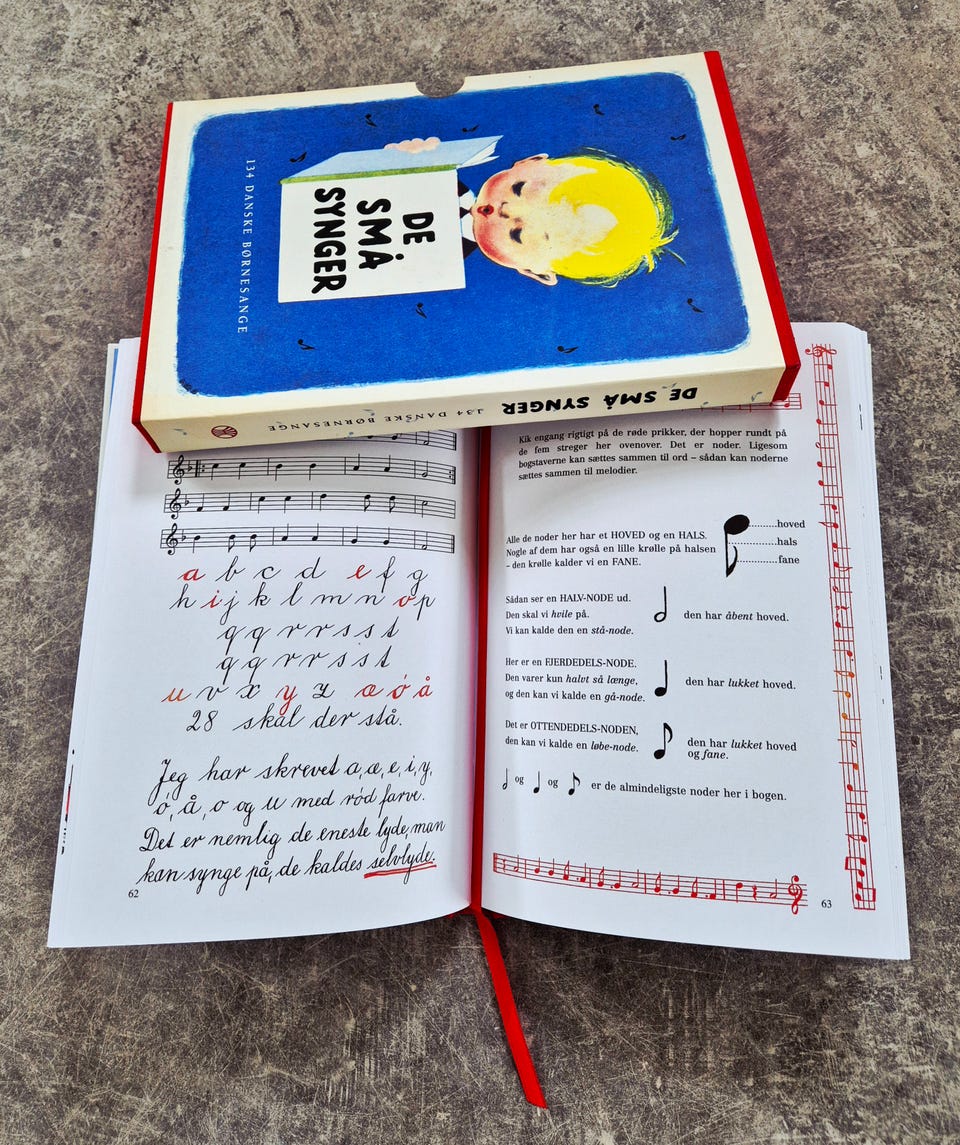 134 DANSKE BØRNESANGE
DE
SMÅ
SYNGER
DE SMÅ SYNGER
134 DANSKE BØRNESANGE
a b c d e f g
h i j k l m n o p
q q r r s s t
q q r r s s t
u v x y z æ ø å
28 skal der stå.
Jeg har skrevet a, æ, e, i, y,
ø, å, o og u med rød farve.
Det er nemlig de eneste lyde, man
kan synge på, de kaldes selvlyde.
62
Kik engang rigtigt på de røde prikker, der hopper rundt på
de fem streger her ovenover. Det er noder. Ligesom
bogstaverne kan sættes sammen til ord – sådan kan noderne
sættes sammen til melodier.
Alle de noder her har et HOVED og en HALS.
Nogle af dem har også en lille krølle på halsen
– den krølle kalder vi en FANE.
hoved
hals
fane
Sådan ser en HALV-NODE ud.
Den skal vi hvile på.
Vi kan kalde den en stå-node.
den har åbent hoved.
Her er en FJERDEDELS-NODE.
Den varer kun halvt så længe,
og den kan vi kalde en gå-node.
den har lukket hoved.
Det er OTTENDEDELS-NODEN,
den kan vi kalde en løbe-node.
den har lukket hoved
og fane.
og og er de almindeligste noder her i bogen.
63